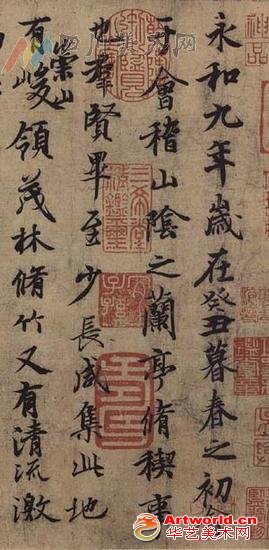 永和九年歲在癸丑暮春之初會
于會稽山陰之蘭亭脩稧事
也羣賢畢至少長咸集此地
有崇山峻領茂林脩竹又有清流激
神品
三希堂精鑑璽
宜子孫
Artworld.cn
华艺美术网